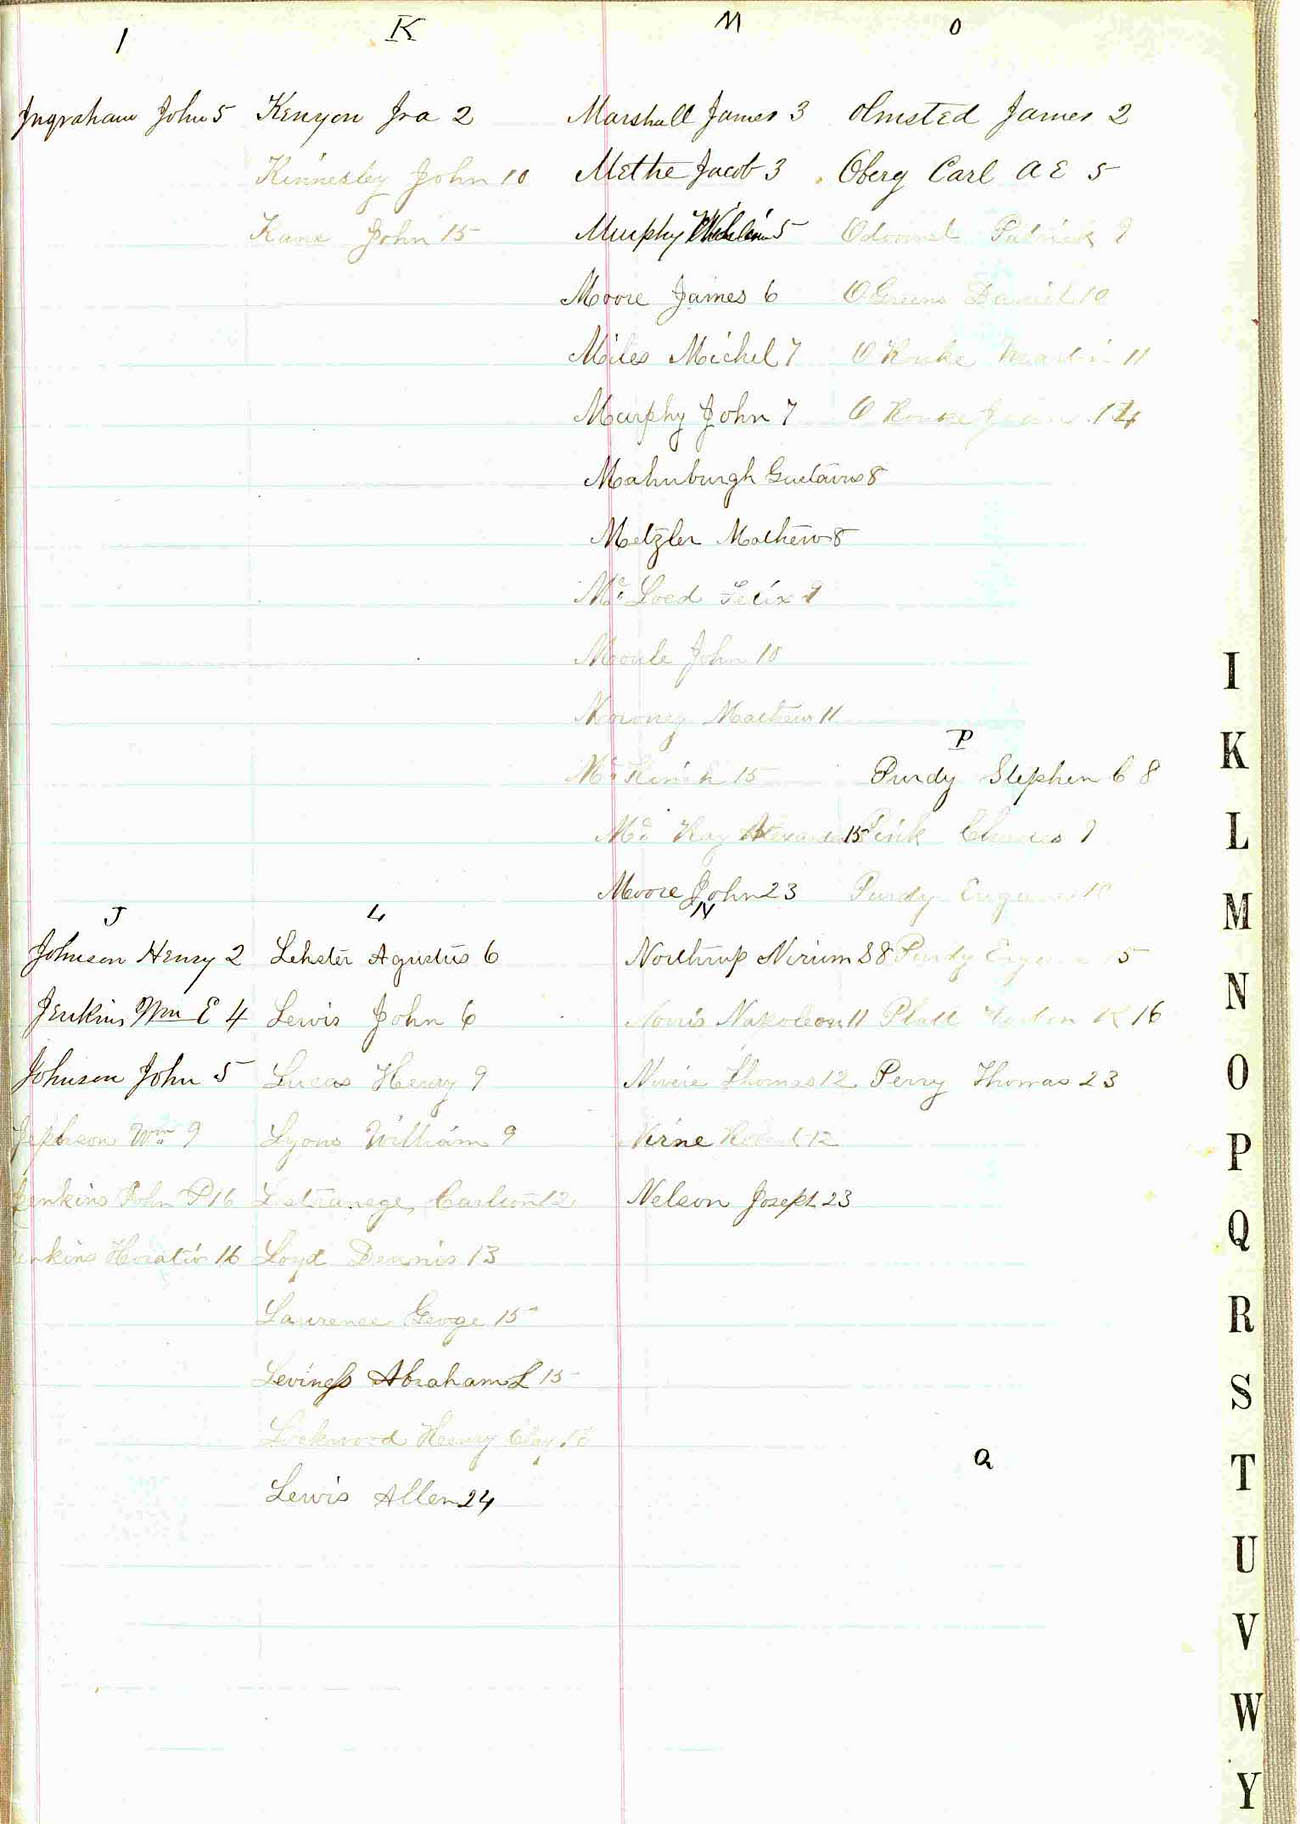 I
Ingraham John 5
K
Kenyon Ira 2
Kinnesley John 10
Kane John 15
M
Marshall James 3
Methe Jacob 3
Murphy 5
Moore James 6
Miles Michel 7
Murphy John 7
Mahnburgh Gustavus 8
Metzler Mathew 8
Mc Loed Felix 9
Moule John 10
Moroney Mathew 11
Mc 15
Mc Kay Alexander 15
Moore John 23
O
Olmsted James 2
Oberg Carl A E 5
Patrick 9
Daniel 10
O Martin 11
O 14
P
Purdy Stephen C 8
Pink Charles 9
Purdy
Purdy 15
Platt R 16
Perry Thomas 23
J
Johnson Henry 2
Jenkins Wm E 4
Johnson John 5
Jephson Wm 9
Jenkins John P 16
Jenkins Horatio 16
L
Lehster Agustus 6
Lewis John 6
Lucas Henry 9
Lyons William 9
Lestrange Carlton 12
Loyd Dennis 13
Laurence Geoge 15
Leviness Abraham L 15
Lockwood Henry Clay
Lewis Allen 24
N
Northrup Nirum S 8
Norris Napoleon 11
Thomas 12
Nirne Robert 12
Nelson Joseph 23
Q
I
K
L
M
N
O
P
Q
R
S
T
U
V
W
Y